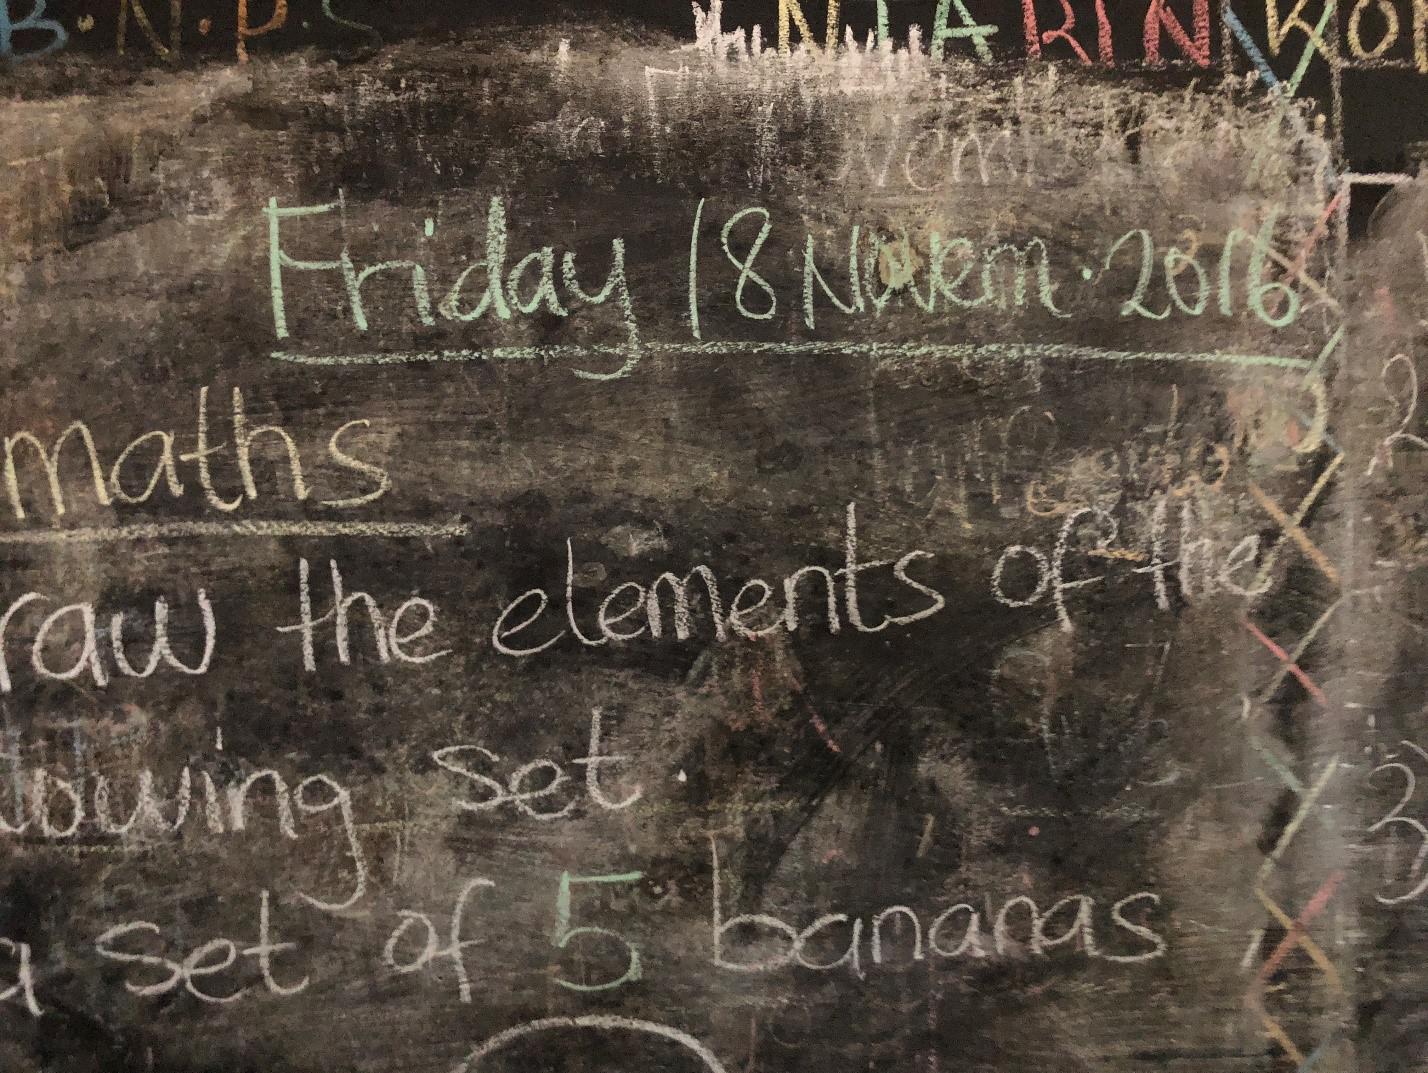 B.N.P.S NTARINKON
Friday 18 Novem. 2016
maths
raw the elements of the
lowing set.
a set of 5 bananas
2
3